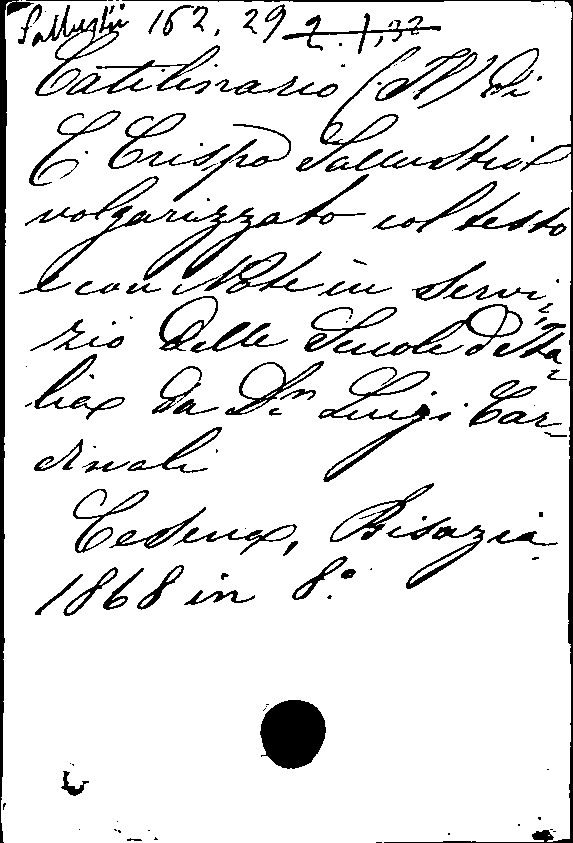 Sallustii 162, 29 2. 1,32
Catilinario (Il) di
C. Crispo Sallustio
volgarizzato col testo
e con Note in servi-
zio delle Scuole d'Ita-
lia da Dn Luigi Car-
dinali
Cesena, Bisazia
1868 in 8.°